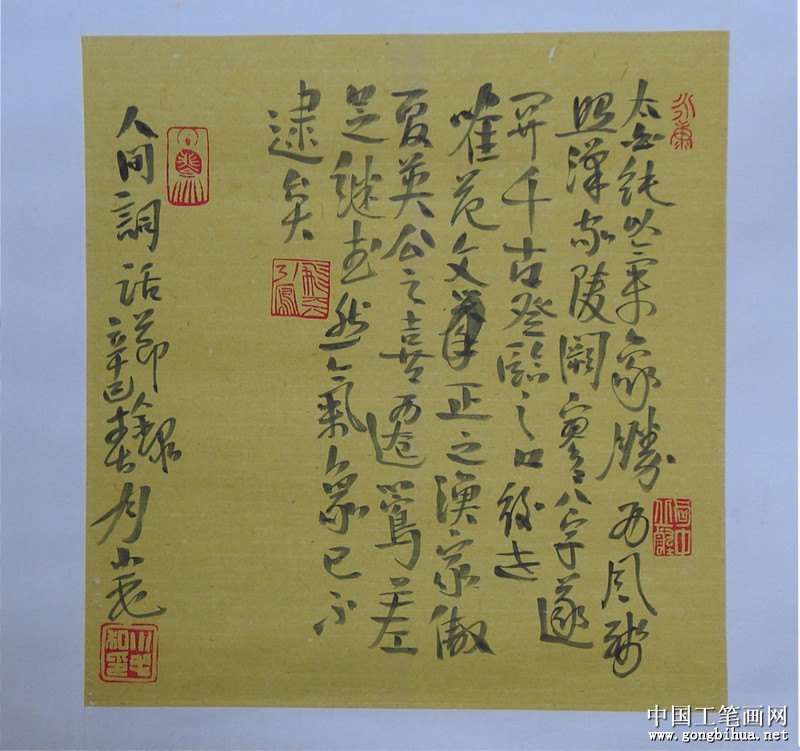 太白純以氣象勝西風残
照漢家陵闕寥寥八字遂
千古登臨之口後世
唯范文正之漁家傲
夏英公之喜遷鶯差
足継武然氣象已不
逮矣
人间詞話節錄
辛巳春
中国工笔画网
www.gongbihua.net